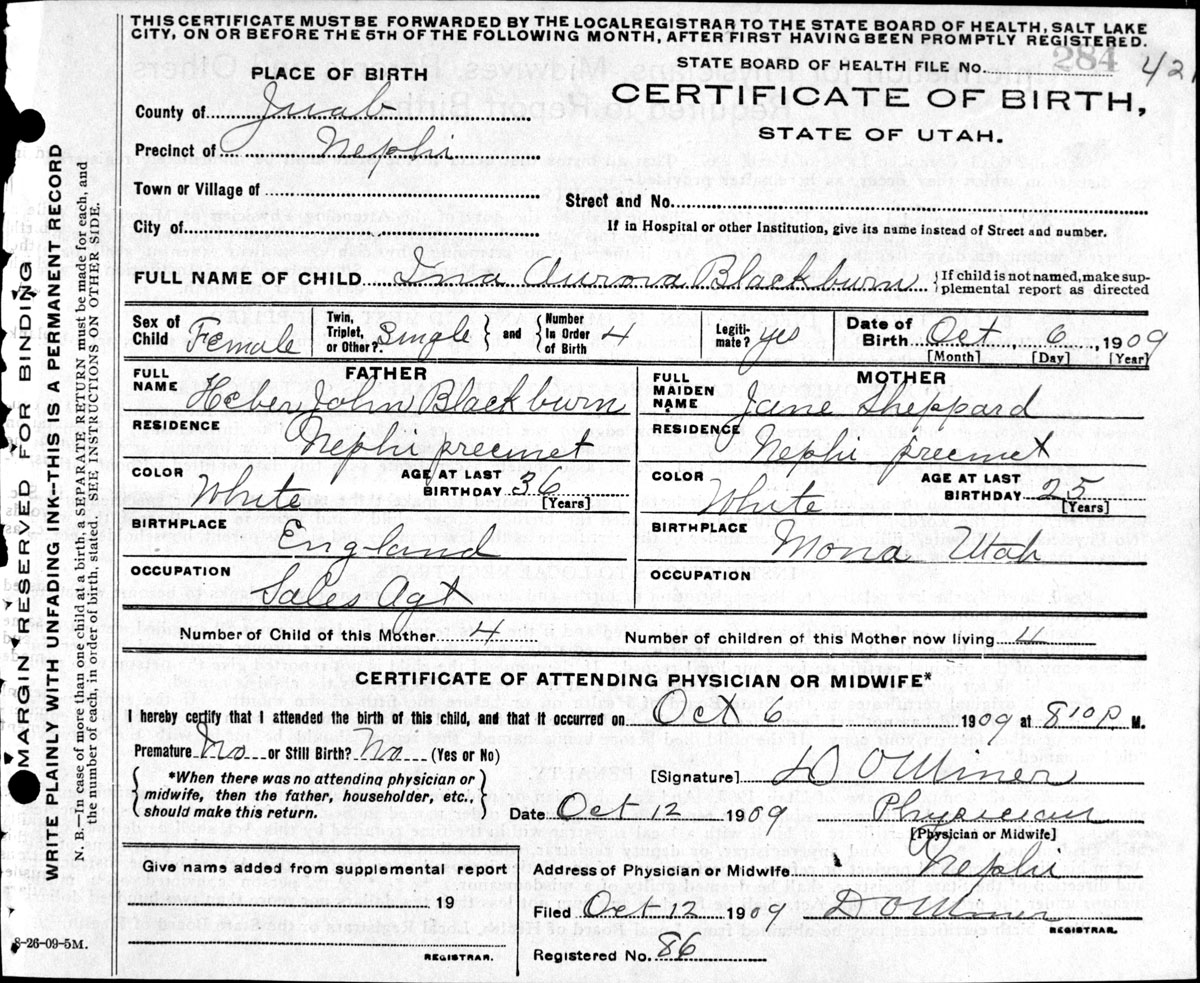 THIS CERTIFICATE MUST BE FORWARDED BY THE LOCALREGISTRAR TO THE STATE BOARD OF HEALTH, SALT LAKE
CITY, ON OR BEFORE THE 5TH OF THE FOLLOWING MONTH, AFTER FIRST HAVING BEEN PROMPTLY REGISTERED.
STATE BOARD OF HEALTH FILE No. 284 421
PLACE OF BIRTH
CERTIFICATE OF BIRTH,
STATE OF UTAH.
County of Juab
Precinct of Nephi
Town or Village of
Street and No.
City of
If in Hospital or other Institution, give its name instead of Street and number.
FULL NAME OF CHILD Aurora Blackburn {If child is not named, make sup-
plemental report as directed
Sex of Child Female Twin, Triplet, or Other? Single } and { Number In Order of Birth 4 Legiti-mate? yes Date of Birth Oct 6 1909
[Month] [Day] [Year]
FATHER
FULL NAME Heber John Blackburn
RESIDENCE Nephi precinct
COLOR White AGE AT LAST BIRTHDAY 36 [Years]
BIRTHPLACE England
OCCUPATION Sales Agt
MOTHER
FULL MAIDEN NAME Jane Sheppard
RESIDENCE Nephi precinct
COLOR White AGE AT LAST BIRTHDAY 25 [Years]
BIRTHPLACE Mona Utah
OCCUPATION
Number of Child of this Mother 4 Number of children of this Mother now living 4
CERTIFICATE OF ATTENDING PHYSICIAN OR MIDWIFE*
I hereby certify that I attended the birth of this child, and that it occurred on Oct 6 1909 at 8 10 P. M.
Premature No or Still Birth? No (Yes or No)
{*When there was no attending physician or
midwife, then the father, householder, etc.,
should make this return.}
[Signature] D O Miner
Date Oct 12 1909 Physician
[Physician or Midwife]
Give name added from supplemental report
19
REGISTRAR.
Address of Physician or Midwife Nephi
Filed Oct 12 1909 D O Miner
REGISTRAR.
Registered No. 86
8-26-09-5M.
MARGIN RESERVED FOR BINDING
WRITE PLAINLY WITH UNFADING INK—THIS IS A PERMANENT RECORD
N. B.—In case of more than one child at a birth, a SEPARATE RETURN must be made for each, and
the number of each, in order of birth, stated. SEE INSTRUCTIONS ON OTHER SIDE.